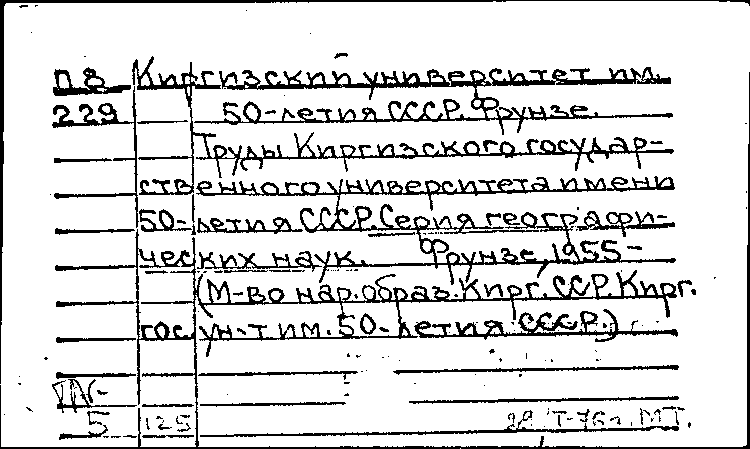 П 8 Киргизский университет им.
229 50-летия СССР. Фрунзе.
Труды Киргизского государ-
ственного университета имени
50-летия СССР. Серия географи-
ческих наук. Фрунзе, 1955-
(М-во нар. образ. Кирг. ССР. Кирг.
гос. ун-т им. 50-летия СССР.)
5 125 Т-76г. МТ.